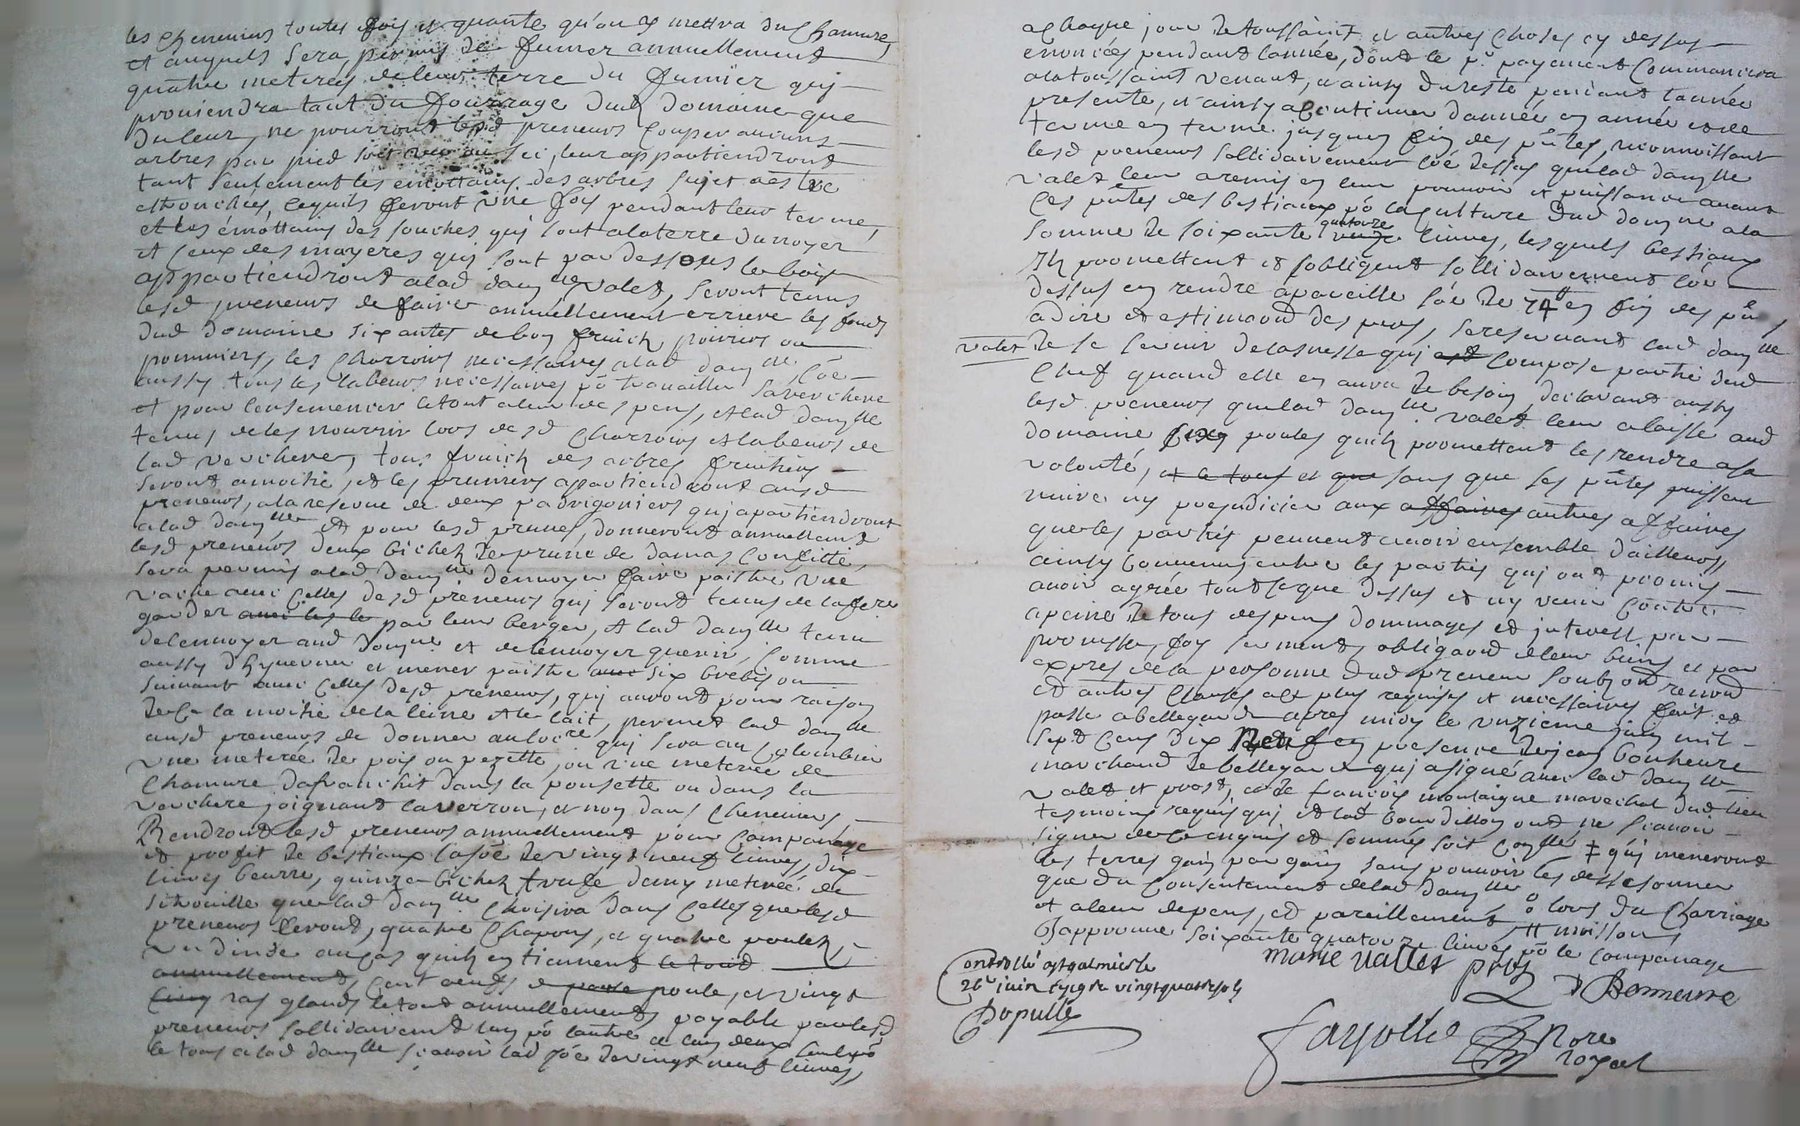 les cheneviers toutes fois et quante qu'on y mettra du chanvre,
et auxquels sera permis de fumer annuellement
quatre meterées de leur terre du fumier qui
proviendra tant du fourrage dud domaine que
du leur, ne pourront lesd preneurs couper aucuns
arbres par pied soit ver ou sec, leur appartiendront
tant seulement les émottains des arbres sujet a estre
ébronchés, lequels feront une fois pendant leur terme,
et les émottains des souches qui sont a la terre du noyer
et ceux des mayeres qui sont par dessous le bois
appartiendront a lad damlle Valet, seront tenus
lesd preneurs de faire annuellement errière les fonds
dud domaine six antes de bon fruict, poiriers ou
pommiers, les charrois necessaires a lad damlle côe
aussy tous les labeurs necessaires pō travailler sa verchere
et pour l'ensemencer le tout a leur despens, et lad damlle
tenue de les nourrir lors desd charrois et labeurs de
lad verchere, tous fruich des arbres fruitiers
seront a moitié, et les pruniers appartiendront ausd
preneurs, a la reserve de deux padrigoniers qui apartiendront
a lad damlle et pour lesd prunes, donneront annuellement
lesd preneurs deux bichets de prune de damas confitte,
sera permis a lad damlle d'envoyer faire paistre une
vache avec celles desd preneurs qui seront tenus de la faire
garder avec les le par leur berger, et lad damlle tenue
de l'envoyer aud domne et de l'envoyer querir, comme
aussy d'hyverner et mener paistre avec six brebis ou
suivant avec celles desd preneurs, qui auront pour raison
de ce la moitié de la leine et le lait, permet lad damlle
ausd preneurs de donner au qui sera au colombier
une meterée de pois ou pezette, ou une meterée de
chanvre dafranchit dans la pousette ou dans la
verchere joignant la verron, et non dans cheneviers
Rendront lesd preneurs annuellement pour companage
et profit de bestiaux la sōe de vingt neuf livres, dix
livres beurre, quinze bichets truffe demy meterée de
sitrouille que lad damlle choisira dans celles que lesd
preneurs feront, quatre chapons, et quatre poulets,
un dinde en cas quils en tiennent le tout
annuellement, cent oeufs de poule poule, et vingt
cinq ras glands le tout annuellement payable par lesd
preneurs sollidairement lun pō lautre et lun deux seul pō
le tout a lad damlle sçavoir lad sōe de vingt neuf livres,
a chaque jour de toussaint et autres choses cy dessus
enoncées pendant l'année, dont le pr payement commancera
a la toussaint venant, et ainsy du reste pendant l'année
presente, et ainsy a continuer d'année en année et de
terme en terme jusques fin des pntes, reconnoissant
lesd preneurs sollidairement côe dessus que lad damlle
Valet leur a remis en leur pouvoir et puissance avant
ces pntes des bestiaux pō la culture dud domne a la
somme de soixante quatorze livres, lesquels bestiaux
ils promettent et s'obligent sollidairement côe
dessus en rendre a pareille sōe de 74 ll en fin des pntes
a dire et estimaōn des preus, se reservant lad damlle
Valet de se servir de lasnesse qui est compose partie dud
chef quand elle en aura de besoin, déclarant aussy
lesd preneurs que lad damlle Valet leur a laissé aud
domaine cinq poules quils promettent les rendre a sa
volonté, et le tout et que sans que les pntes puissent
nuire ny prejudicier aux affaires autres affaires
que les parties peuvent avoir ensemble d'ailleurs,
ainsy convenu entre les parties qui ont promis
avoir agrée tout ce que dessus et ny venir contre
a peine de tous despens dommages et interest par
promesse, foy serment, obligaōn de leur biens et par
expres de la personne dud preneur soubz on renond
et autres clauses a ce plus requises et necessaires fait et
passé a bellegarde apres midy le unzieme juin mil
sept cens dix neuf en presence de jean bonheure
marchand de bellegarde qui a signé avec lad damlle
Valet et prost, et de françois montaigne marechal dud lieu
tesmoins requis qui et lad bourdillon ont ne sçavoir
signer de ce enquis et sommés soit coyllé ‡ qui meneront
les terres gain par gain sans pouvoir les dessesonner
que du consentement de lad damlle
et a leur depens, et pareillement lors du charriage
moissons
Japprouve soixante quatorze livres pō le companage
Marie Vallet prost
D Bonneure
Controllé a st galmier le
26e juin 1719 R vingt quatre sols
Populle
Fayolle Nore
royal